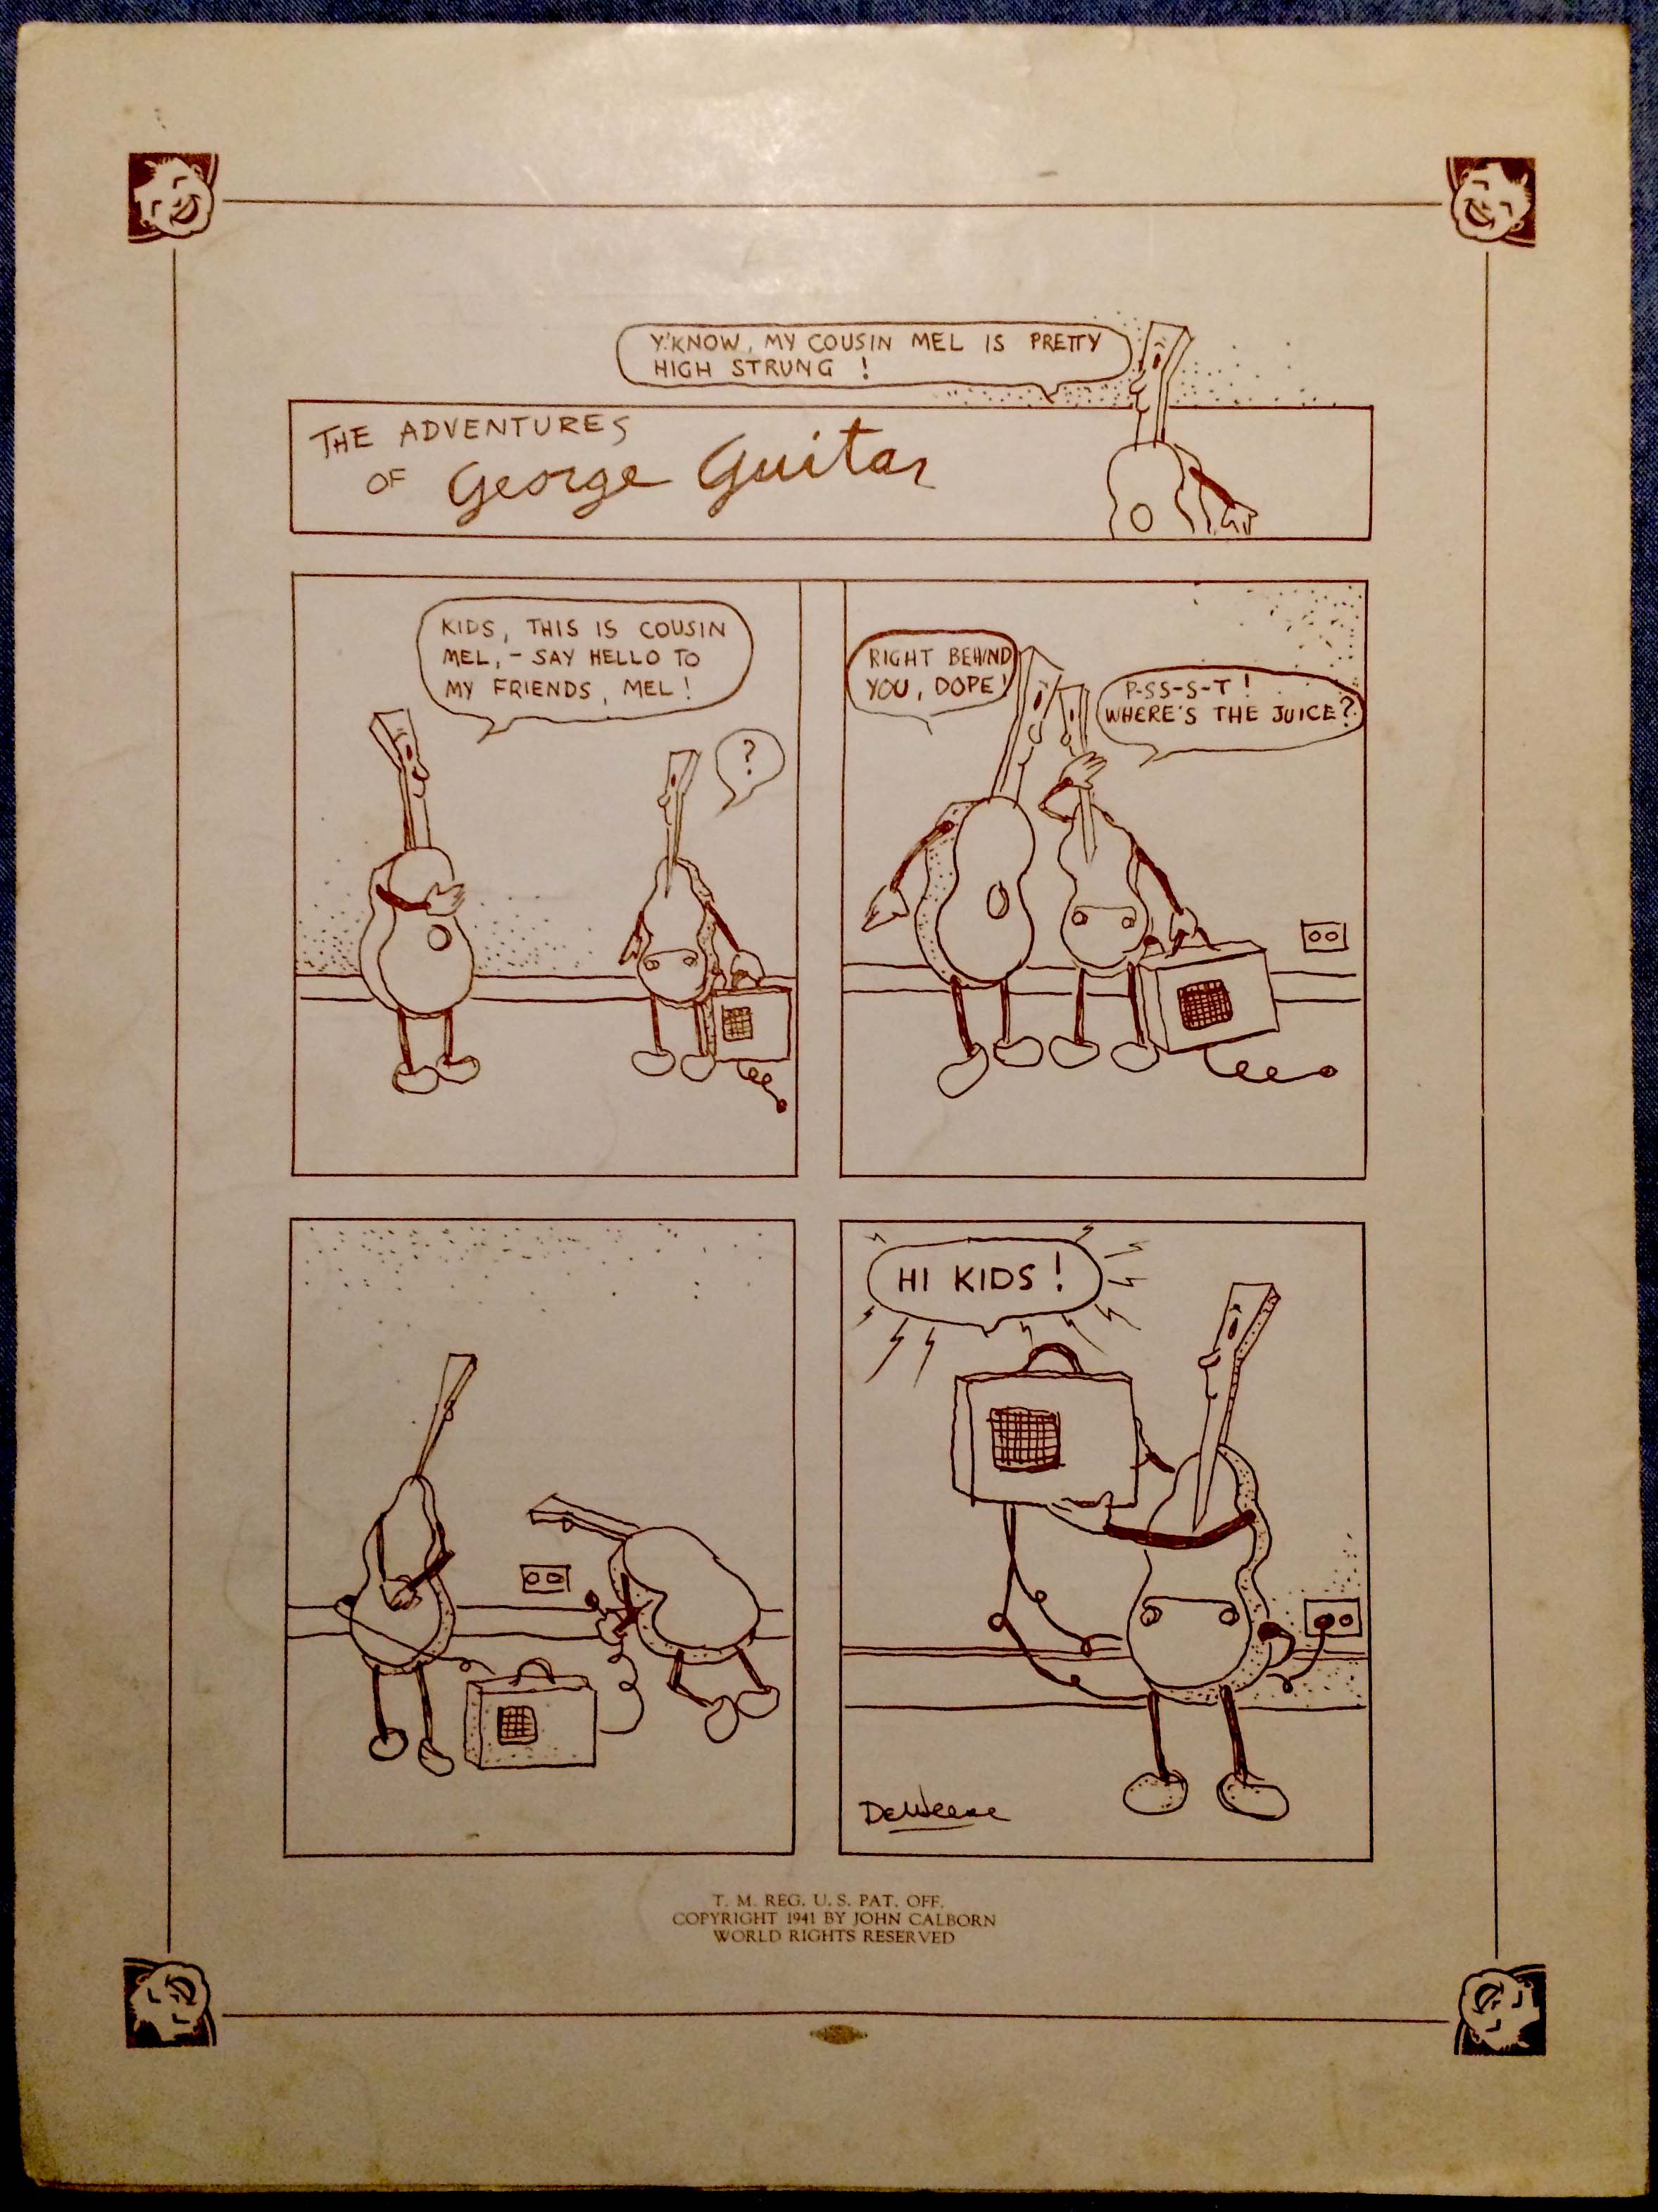 Y'KNOW, MY COUSIN MEL IS PRETTY
HIGH STRUNG !
THE ADVENTURES
OF George Guitar
KIDS, THIS IS COUSIN
MEL, - SAY HELLO TO
MY FRIENDS, MEL!
?
RIGHT BEHIND
YOU, DOPE!
P-SS-S-T !
WHERE'S THE JUICE?
HI KIDS !
DeWeese
T. M. REG. U. S. PAT. OFF.
COPYRIGHT 1941 BY JOHN CALBORN
WORLD RIGHTS RESERVED